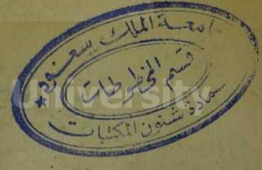 جامعة الملك سعود
قسم المخطوطات
عمادة شئون المكتبات
University